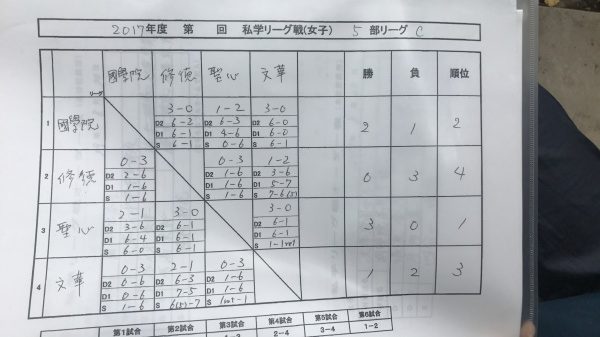 2017年度 第 回 私学リーグ戦(女子) 5 部リーグ C
リーグ 國學院 修徳 聖心 文華 勝 負 順位
3-0 1-2 3-0
D2 6-2 D2 6-3 D2 6-0
1 國學院 D1 6-1 D1 4-6 D1 6-0 2 1 2
S 6-1 S 0-6 S 6-1
0-3 0-3 1-2
D2 2-6 D2 1-6 D2 3-6
2 修徳 D1 1-6 D1 1-6 D1 5-7 0 3 4
S 1-6 S 1-6 S 7-6(5)
2-1 3-0 3-0
D2 3-6 D2 6-1 D2 6-1
3 聖心 D1 6-4 D1 6-1 D1 6-1 3 0 1
S 6-0 S 6-1 S 1-1ret
0-3 2-1 0-3
D2 0-6 D2 6-3 D2 1-6
4 文華 D1 0-6 D1 7-5 D1 1-6 1 2 3
S 1-6 S 6(5)-7 S 1ret-1
第1試合 第2試合 第3試合 第4試合 第5試合 第6試合
1-3 2-4 3-4 1-2